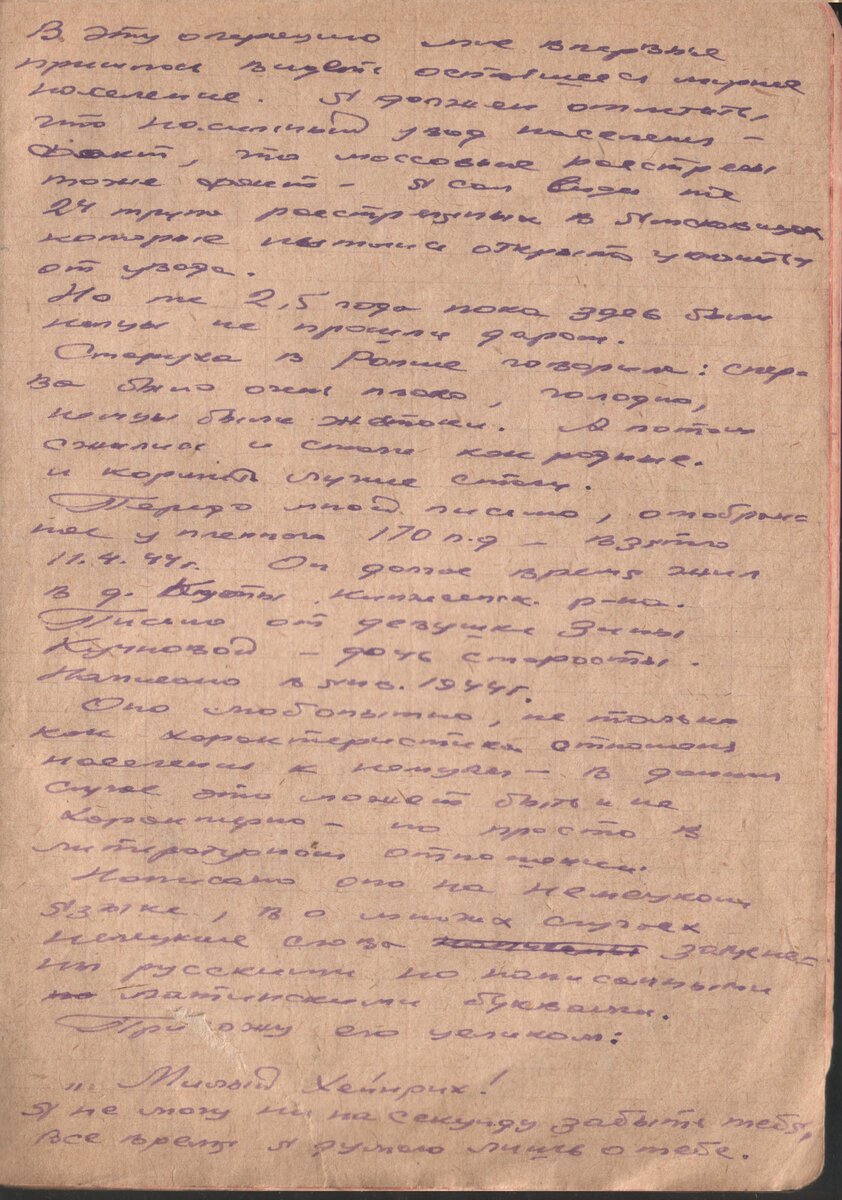 В эту операцию мне впервые
пришлось видеть оставшееся мирное
население. Я должен отметить,
что насильный увод населения –
факт, что массовые расстрелы
тоже факт – я сам видел те
24 трупа расстрелянных в
которые пытались открыто уклониться
от увода.
Но те 2,5 года пока здесь были
немцы не прошли даром.
Старуха в Ропше говорила: спер-
ва было очень плохо, голодно,
немцы были жестоки. А потом
сжились и стали как родные.
и кормить лучше стали.
Передо мной письмо, отобран-
ное у пленного 170 п.д – взято
11.4.44г. Он долгое время жил
в д. р-на.
Письмо от девушки Зины
Кучновой – дочь старосты.
Написано в янв. 1944г.
Оно любопытно, не только
как характеристика отношения
населения к немцам – в данном
случае это может быть и не
характерно – но просто в
литературном отношении.
Написано оно на немецком
языке, в о многих случаях
немецкие слова написаны замене-
ны русскими но написанными
по латинскими буквами.
Привожу его целиком:
„ Милый Хейнрих!
Я не могу ни на секунду забыть тебя,
все время я думаю лишь о тебе.